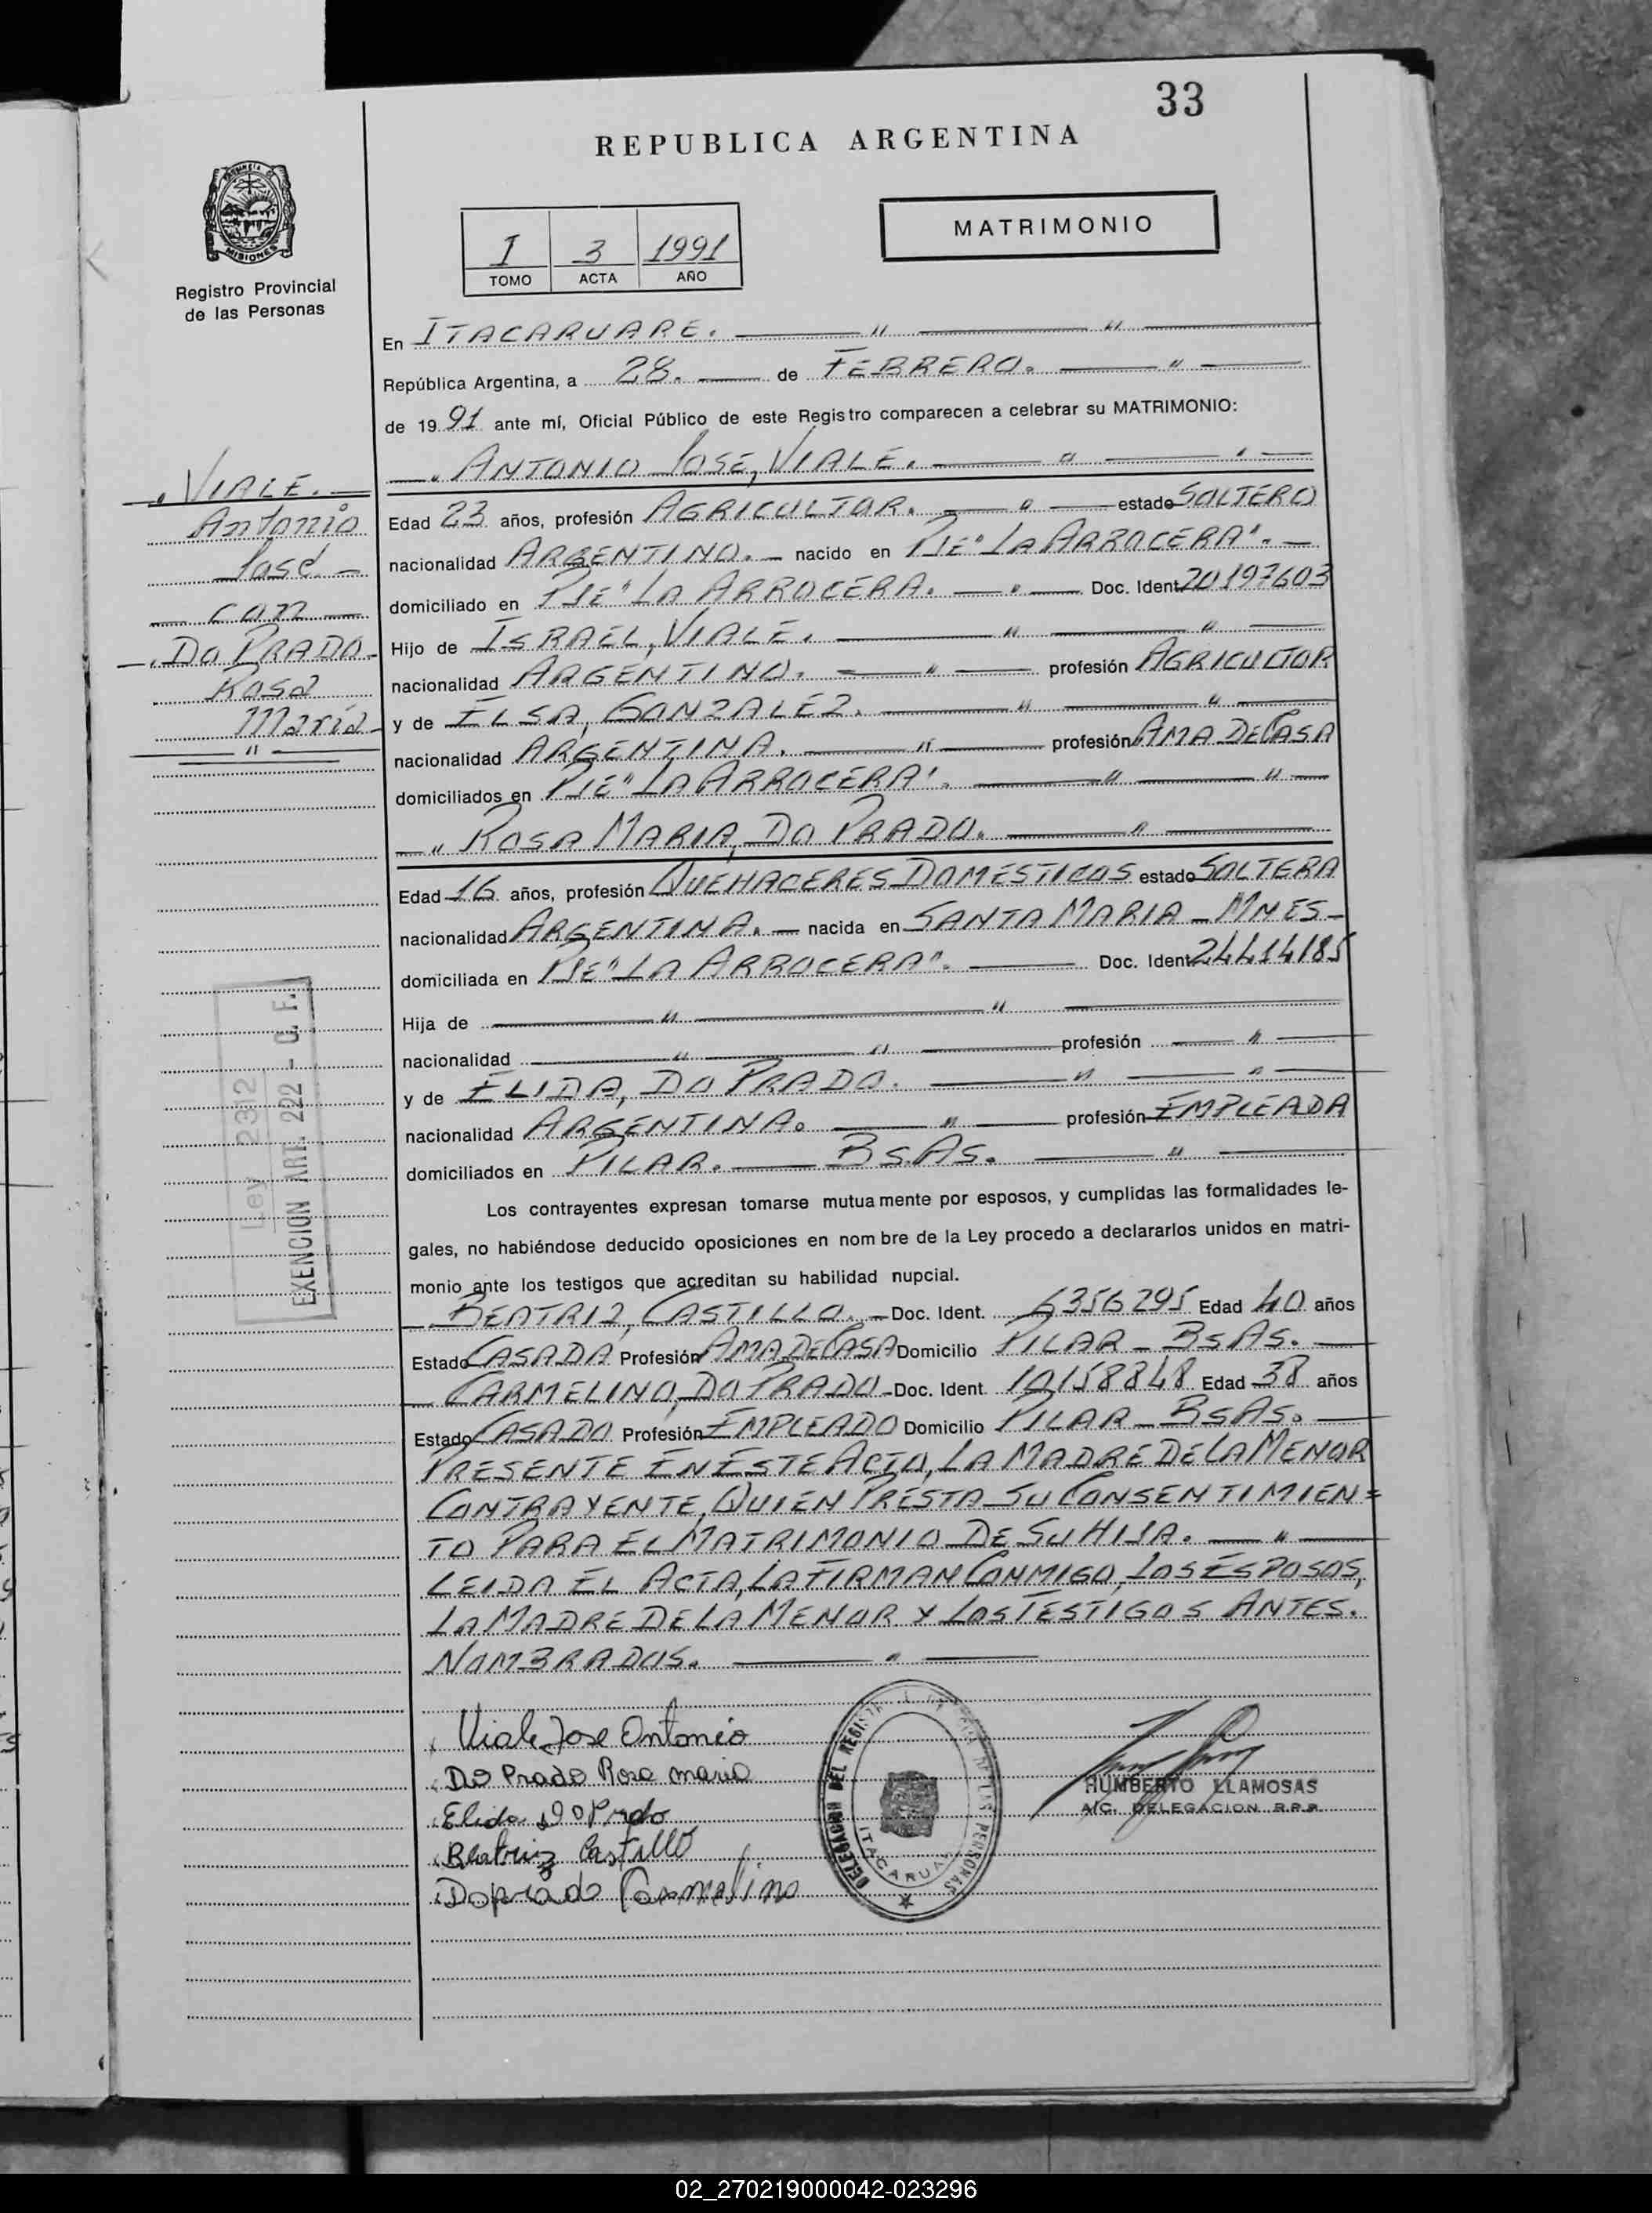 33
REPUBLICA ARGENTINA
PROVINCIA DE
MISIONES
Registro Provincial
de las Personas
MATRIMONIO
I 3 1991
TOMO ACTA AÑO
En ITACARUARE. — " — " —
República Argentina, a 28. — de FEBRERO. — " —
de 1991 ante mí, Oficial Público de este Registro comparecen a celebrar su MATRIMONIO:
—" ANTONIO JOSE, VIALE. — " — " —
Edad 23 años, profesión AGRICULTOR. — " — estado SOLTERO
nacionalidad ARGENTINO. — nacido en PJE "LA ARROCERA". —
domiciliado en PJE "LA ARROCERA. — " — Doc. Ident 20197603
Hijo de ISRAEL, VIALE. — " — " —
nacionalidad ARGENTINO. — " — profesión AGRICULTOR
y de ELSA, GONZALEZ. — " — " —
nacionalidad ARGENTINA. — " — profesión AMA DE CASA
domiciliados en PJE "LA ARROCERA". — " — " —
—" ROSA MARIA, DO PRADO. — " —
Edad 16 años, profesión QUEHACERES DOMESTICOS estado SOLTERA
nacionalidad ARGENTINA. — nacida en SANTA MARIA — MNES —
domiciliada en PJE "LA ARROCERA". — Doc. Ident 24414185
Hija de — " — " —
nacionalidad — " — " — profesión — " —
y de ELIDA, DO PRADO. — " — " —
nacionalidad ARGENTINA. — " — profesión EMPLEADA
domiciliados en PILAR. — BS.AS. — " —
Los contrayentes expresan tomarse mutuamente por esposos, y cumplidas las formalidades le-
gales, no habiéndose deducido oposiciones en nombre de la Ley procedo a declararlos unidos en matri-
monio ante los testigos que acreditan su habilidad nupcial.
— BEATRIZ, CASTILLO. — Doc. Ident. 6356295 Edad 40 años
Estado CASADA Profesión AMA DE CASA Domicilio PILAR — BS AS. —
— CARMELINO, DO PRADO — Doc. Ident. 10158848 Edad 38 años
Estado CASADO Profesión EMPLEADO Domicilio PILAR — BS AS. —
PRESENTE EN ESTE ACTO, LA MADRE DE LA MENOR
CONTRAYENTE, QUIEN PRESTA SU CONSENTIMIEN=
TO PARA EL MATRIMONIO DE SU HIJA. — " —
LEIDA EL ACTA, LA FIRMAN CONMIGO, LOS ESPOSOS,
LA MADRE DE LA MENOR Y LOS TESTIGOS ANTES.
NOMBRADOS. — " —
Viale Jose Antonio
Do Prado Rosa maria
Elida Do Prado
Beatriz Castillo
Doprado Carmelino
DELEGACION DEL REGISTRO DE LAS PERSONAS
ITACARUA
HUMBERTO LLAMOSAS
A/C. DELEGACION R.P.P.
. VIALE. —
Antonio
José —
— con —
—. DO PRADO —
Rosa
María —
— " —
Ley 2312
EXENCION ART. 222 - C. F.
02_270219000042-023296